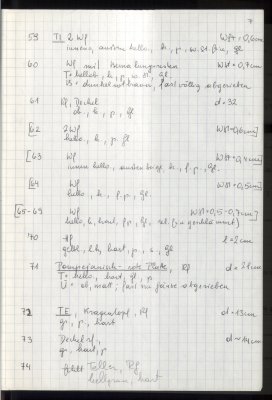 7
59 TI 2 Wf WSt = 0,6cm
innen, aussen hello., h., p., w. St., gl.
60 Wf mit Bemalungsresten WSt = 0,7cm
T: hellob., h., p., w. St., gl.
B: dunkelrotbraun, fast völlig abgerieben
61 Rf, Deckel d = 32
ob., h., p., gl.
[62 2 Wf WSt = 0,6cm]
hello., h., p., gl.
[63 Wf WSt = 0,4cm]
innen hello., aussen h., f.p., gl.
[64 Wf WSt = 0,5cm]
hello., h., f.p., gl.
[65-69 Wf WSt = 0,5-0,7cm]
hello., b., hart, f.p., gl.
70 Hf l = 2cm
gelbl., hart, p., s., gl.
71 Pompejanisch-rote Platte, Rf d = 28cm
T: hello., hart, gl., p.
Ü: ob., matt; fast zu gänze abgerieben
72 TE, Kragentopf, Rf d = 13cm
gr., p., hart
73 Deckelrf., d ~ 14cm
gr., hart, p
74 fehlt Teller, Rf
hellgrau, hart